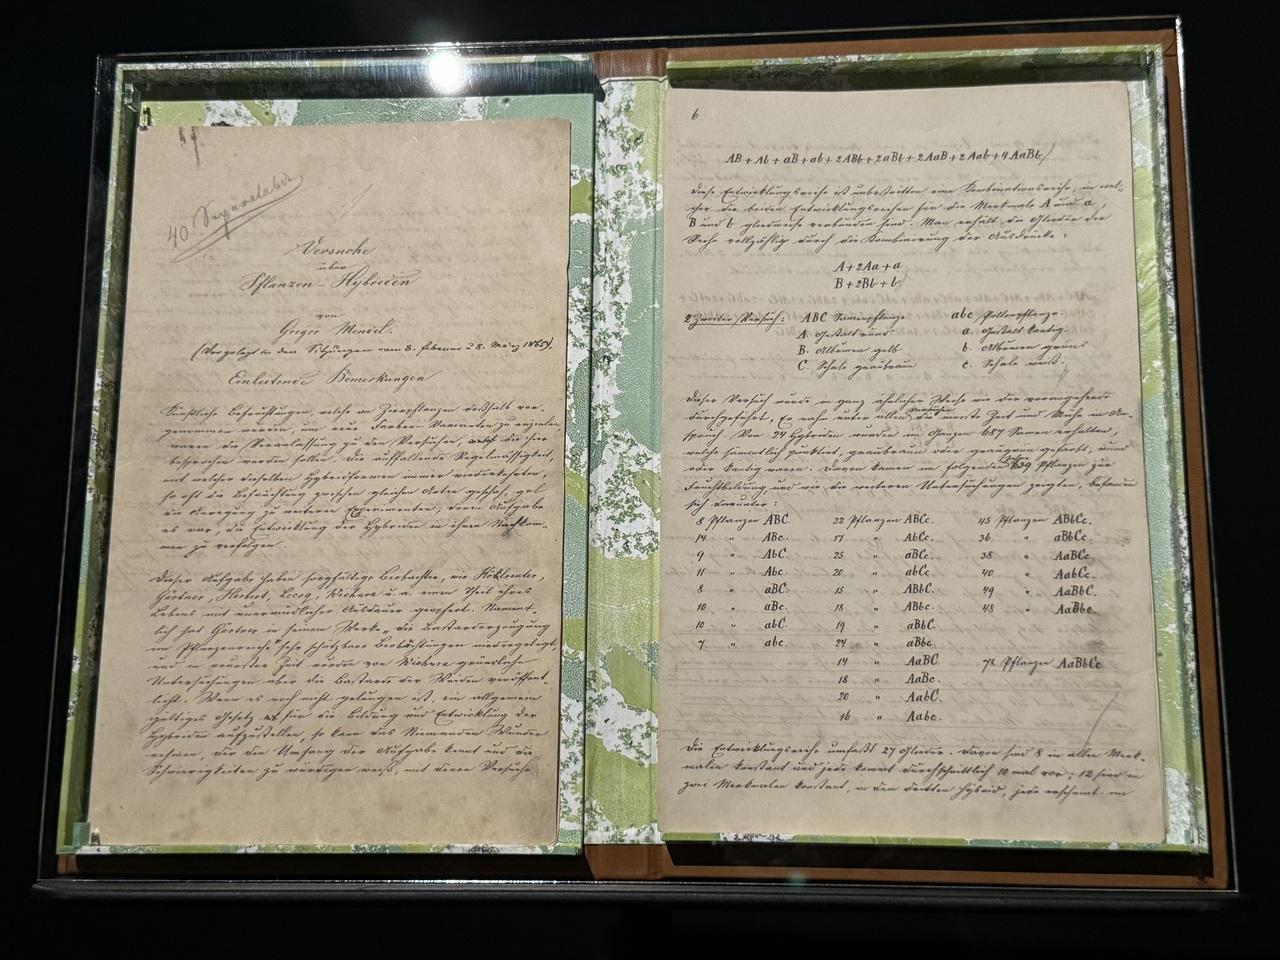 40 Separatabdr.
Versuche
über
Pflanzen-Hybriden
von
Gregor Mendel.
(Vorgelegt in den Sitzungen vom 8. Februar u 8. März 1865).
Einleitende Bemerkungen
Künstliche Befruchtungen, welche an Zierpflanzen deßhalb vor-
genommen wurden, um neue Farben-Varianten zu erzielen,
waren die Veranlassung zu den Versuchen, die hier
besprochen werden sollen. Die auffallende Regelmäßigkeit,
mit welcher dieselben Hybridformen immer wiederkehrten,
so oft die Befruchtung zwischen gleichen Arten geschah, gab
die Anregung zu weiteren Experimenten, deren Aufgabe
es war, die Entwicklung der Hybriden in ihren Nachkom-
men zu verfolgen.
Dieser Aufgabe haben sorgfältige Beobachter, wie Kölreuter,
Gärtner, Herbert, Lecoq, Wichura u. a. einen Theil ihres
Lebens mit unermüdlicher Ausdauer geopfert. Nament-
lich hat Gärtner in seinem Werke „die Bastarderzeugung
im Pflanzenreiche" sehr schätzbare Beobachtungen niedergelegt,
und in neuester Zeit wurden von Wichura gründliche
Untersuchungen über die Bastarde der Weiden veröffent-
licht. Wenn es noch nicht gelungen ist, ein allgemein
gültiges Gesetz für die Bildung und Entwicklung der
Hybriden aufzustellen, so kann das Niemanden Wunder
nehmen, der den Umfang der Aufgabe kennt und die
Schwierigkeiten zu würdigen weiß, mit denen Versuche
6
AB + Ab + aB + ab + 2ABb + 2aBb + 2AaB + 2Aab + 4AaBb
Diese Entwicklungsreihe ist unbestritten eine Kombinationsreihe, in wel-
cher die beiden Entwicklungsreihen für die Merkmale A und a,
B und b gliedweise verbunden sind. Man erhält die Glieder der
Reihe vollzählig durch die Kombinirung der Ausdrücke:
A + 2Aa + a
B + 2Bb + b
2 Zweiter Versuch: ABC Samenpflanze abc Pollenpflanze
A. Gestalt rund a. Gestalt kantig.
B. Albumen gelb b. Albumen grün.
C. Schale graubraun c. Schale weiß.
Dieser Versuch wurde in ganz ähnlicher Weise wie der vorangehende
durchgeführt. Er nahm unter allen Versuchen die meiste Zeit und Mühe in An-
spruch. Von 24 Hybriden wurden im Ganzen 687 Samen erhalten,
welche sämmtlich punktirt, graubraun oder graugrün gefärbt, rund
oder kantig waren. Davon kamen im folgenden Jahre 639 Pflanzen zur
Fruchtbildung, und wie die weiteren Untersuchungen zeigten, befanden
sich darunter:
8 Pflanzen ABC. 22 Pflanzen ABCc. 45 Pflanzen ABbCc.
14 " ABc. 17 " AbCc. 36 " aBbCc.
9 " AbC. 25 " aBCc. 38 " AaBCc.
11 " Abc. 20 " abCc. 40 " AabCc.
8 " aBC. 15 " ABbC. 49 " AaBbC.
10 " aBc. 18 " ABbc. 48 " AaBbc.
10 " abC. 19 " aBbC.
7 " abc. 24 " aBbc.
14 " AaBC 78 Pflanzen AaBbCc
18 " AaBc.
20 " AabC.
16 " Aabc.
Die Entwicklungsreihe umfaßt 27 Glieder. Davon sind 8 in allen Merk-
malen konstant und jede kommt durchschnittlich 10 mal vor; 12 sind in
zwei Merkmalen konstant, in dem dritten hybrid, jede erscheint im